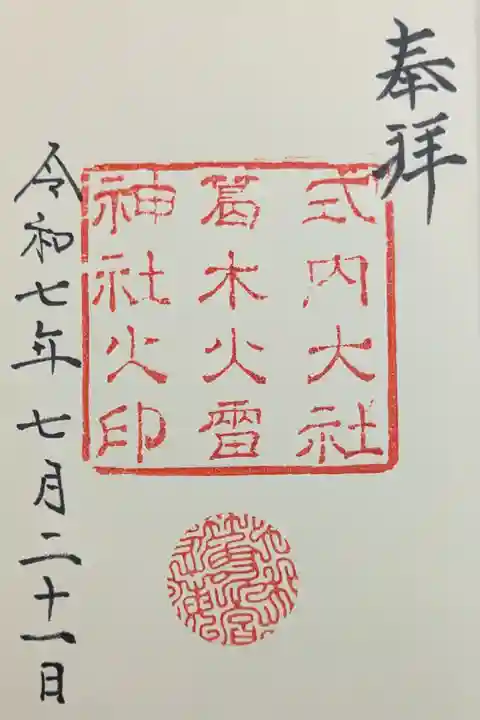 奉拝
式内大社
葛木火雷
神社火印
令和七年七月二十一日